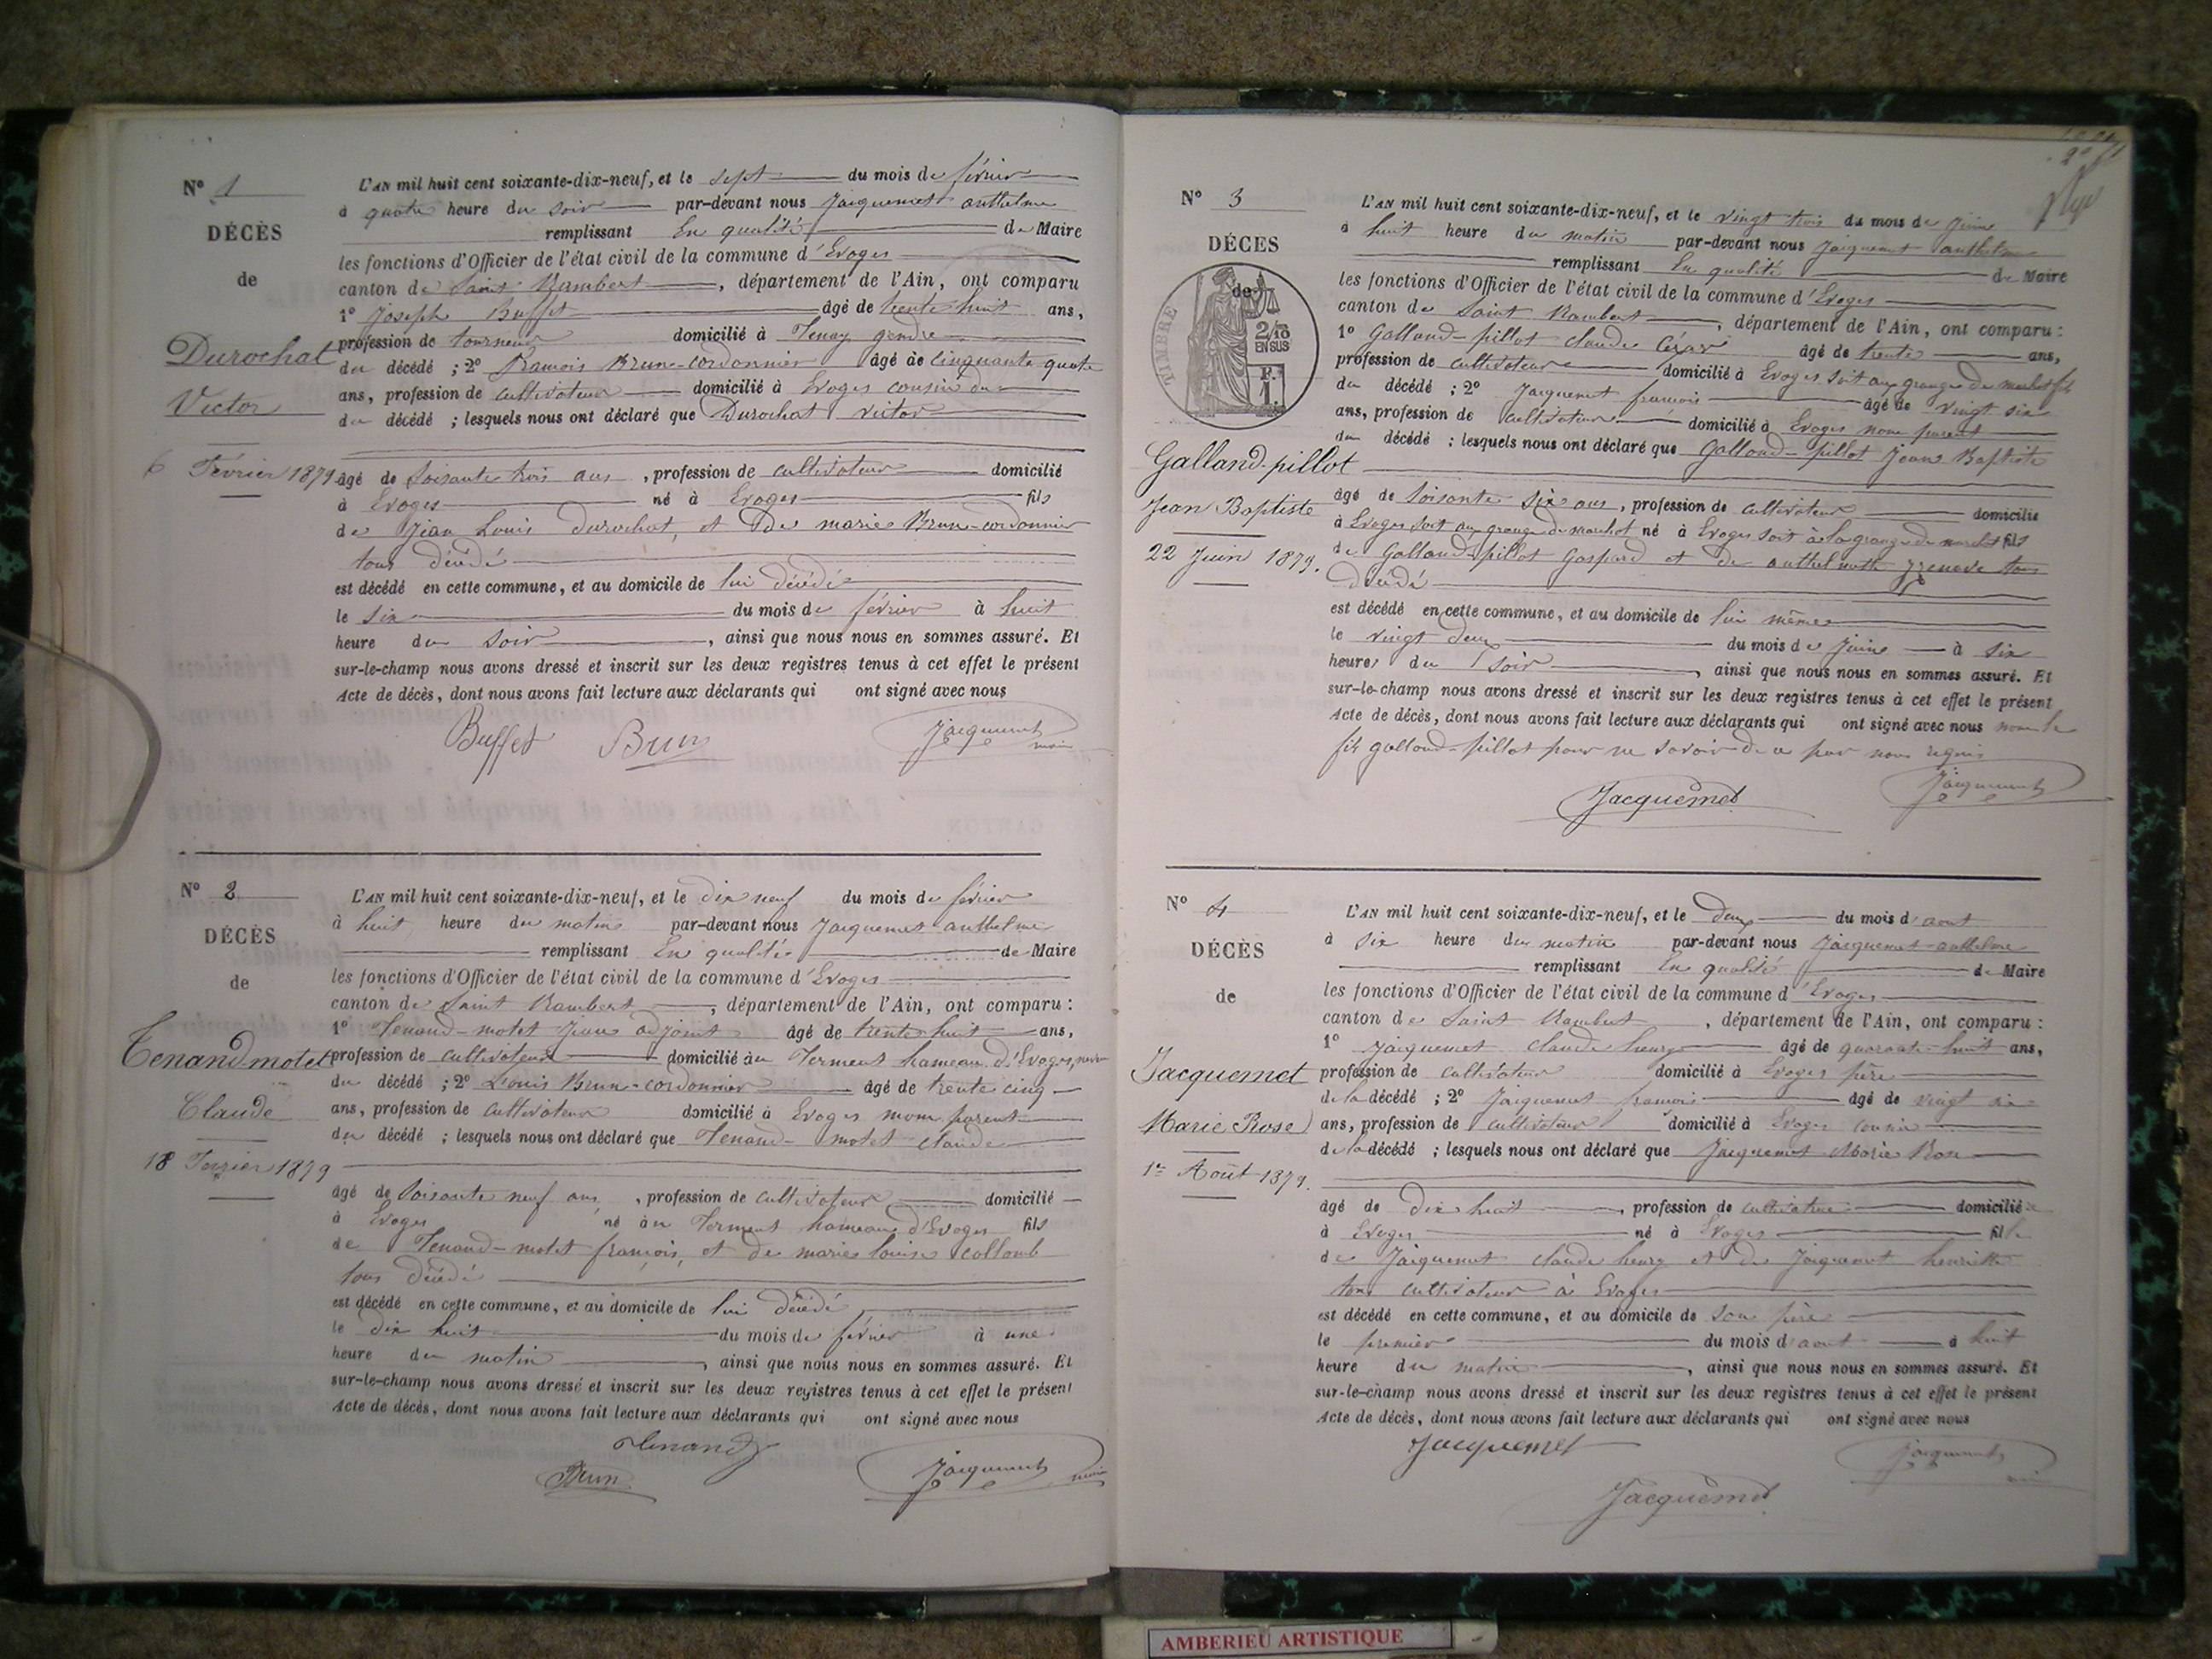 N° 1
DÉCÈS
de
Durochat
Victor
6 Février 1879
L'AN mil huit cent soixante-dix-neuf, et le sept du mois de février
à quatre heure du soir par-devant nous Jacquemet anthelme
remplissant En qualité de Maire
les fonctions d'Officier de l'état civil de la commune d'Evoges
canton de Saint Rambert, département de l'Ain, ont comparu
1° Joseph Buffet âgé de trente huit ans,
profession de tourneur domicilié à Tenay gendre
du décédé ; 2° François Brun-cordonnier âgé de cinquante quatre
ans, profession de cultivateur domicilié à Evoges cousin du
du décédé ; lesquels nous ont déclaré que Durochat victor
âgé de soixante trois ans, profession de cultivateur domicilié
à Evoges né à Evoges fils
de Jean Louis Durochat, et de marie Brun-cordonnier
tous décédé
est décédé en cette commune, et au domicile de lui décédé
le six du mois de février à huit
heure du soir, ainsi que nous nous en sommes assuré. Et
sur-le-champ nous avons dressé et inscrit sur les deux registres tenus à cet effet le présent
Acte de décès, dont nous avons fait lecture aux déclarants qui ont signé avec nous
Buffet Brun Jacquemet maire
N° 2
DÉCÈS
de
Tenand-motet
Claude
18 Fevrier 1879
L'AN mil huit cent soixante-dix-neuf, et le dix neuf du mois de février
à huit heure du matin par-devant nous Jacquemet anthelme
remplissant En qualité de Maire
les fonctions d'Officier de l'état civil de la commune d'Evoges
canton de Saint Rambert, département de l'Ain, ont comparu :
1° Tenand-motet Jean adjoint âgé de trente huit ans,
profession de cultivateur domicilié au Terment hameau d'Evoges,
du décédé ; 2° Louis Brun-cordonnier âgé de trente cinq
ans, profession de cultivateur domicilié à Evoges non parent
du décédé ; lesquels nous ont déclaré que Tenand-motet claude
âgé de soixante neuf ans, profession de cultivateur domicilié
à Evoges né au Terment hameau d'Evoges fils
de Tenand-motet françois, et de marie louise collomb
tous décédé
est décédé en cette commune, et au domicile de lui décédé
le dix huit du mois de février à une
heure du matin, ainsi que nous nous en sommes assuré. Et
sur-le-champ nous avons dressé et inscrit sur les deux registres tenus à cet effet le présent
Acte de décès, dont nous avons fait lecture aux déclarants qui ont signé avec nous
Tenand
Brun Jacquemet maire
N° 3
DÉCES
de
TIMBRE
2/10
EN SUS
F.
1.
Galland-pillot
Jean Baptiste
22 Juin 1879.
L'AN mil huit cent soixante-dix-neuf, et le vingt trois du mois de juin
à huit heure du matin par-devant nous Jacquemet anthelme
remplissant En qualité de Maire
les fonctions d'Officier de l'état civil de la commune d'Evoges
canton de Saint Rambert, département de l'Ain, ont comparu :
1° Galland-pillot claude César âgé de trente ans,
profession de cultivateur domicilié à Evoges soit aux granges du marchot fils
du décédé ; 2° Jacquemet françois âgé de vingt six
ans, profession de cultivateur domicilié à Evoges non parent
du décédé ; lesquels nous ont déclaré que Galland-pillot Jean Baptiste
âgé de soixante six ans, profession de cultivateur domicilié
à Evoges soit aux granges du marchot né à Evoges soit à la grange du marchot fils
de Galland-pillot Gaspard et de anthelmette tous
décédé
est décédé en cette commune, et au domicile de lui même
le vingt deux du mois de juin à six
heures du soir, ainsi que nous nous en sommes assuré. Et
sur-le-champ nous avons dressé et inscrit sur les deux registres tenus à cet effet le présent
Acte de décès, dont nous avons fait lecture aux déclarants qui ont signé avec nous non le
fils galland-pillot pour ne savoir de ce par nous requis
Jacquemet Jacquemet
N° 4
DÉCÈS
de
Jacquemet
Marie Rose
1er Août 1879.
L'AN mil huit cent soixante-dix-neuf, et le deux du mois d'aout
à six heure du matin par-devant nous Jacquemet anthelme
remplissant En qualité de Maire
les fonctions d'Officier de l'état civil de la commune d'Evoges
canton de Saint Rambert, département de l'Ain, ont comparu :
1° Jacquemet claude henry âgé de quarante-huit ans,
profession de cultivateur domicilié à Evoges père
de la décédé ; 2° Jacquemet françois âgé de vingt six
ans, profession de cultivateur domicilié à Evoges cousin
de la décédé ; lesquels nous ont déclaré que Jacquemet Marie Rose
âgé de dix huit, profession de cultivatrice domicilié
à Evoges né à Evoges fille
de Jacquemet claude henry et de Jacquemet henriette
tous cultivateur à Evoges
est décédé en cette commune, et au domicile de son père
le premier du mois d'aout à huit
heure du matin, ainsi que nous nous en sommes assuré. Et
sur-le-champ nous avons dressé et inscrit sur les deux registres tenus à cet effet le présent
Acte de décès, dont nous avons fait lecture aux déclarants qui ont signé avec nous
Jacquemet Jacquemet
Jacquemet
AMBERIEU ARTISTIQUE